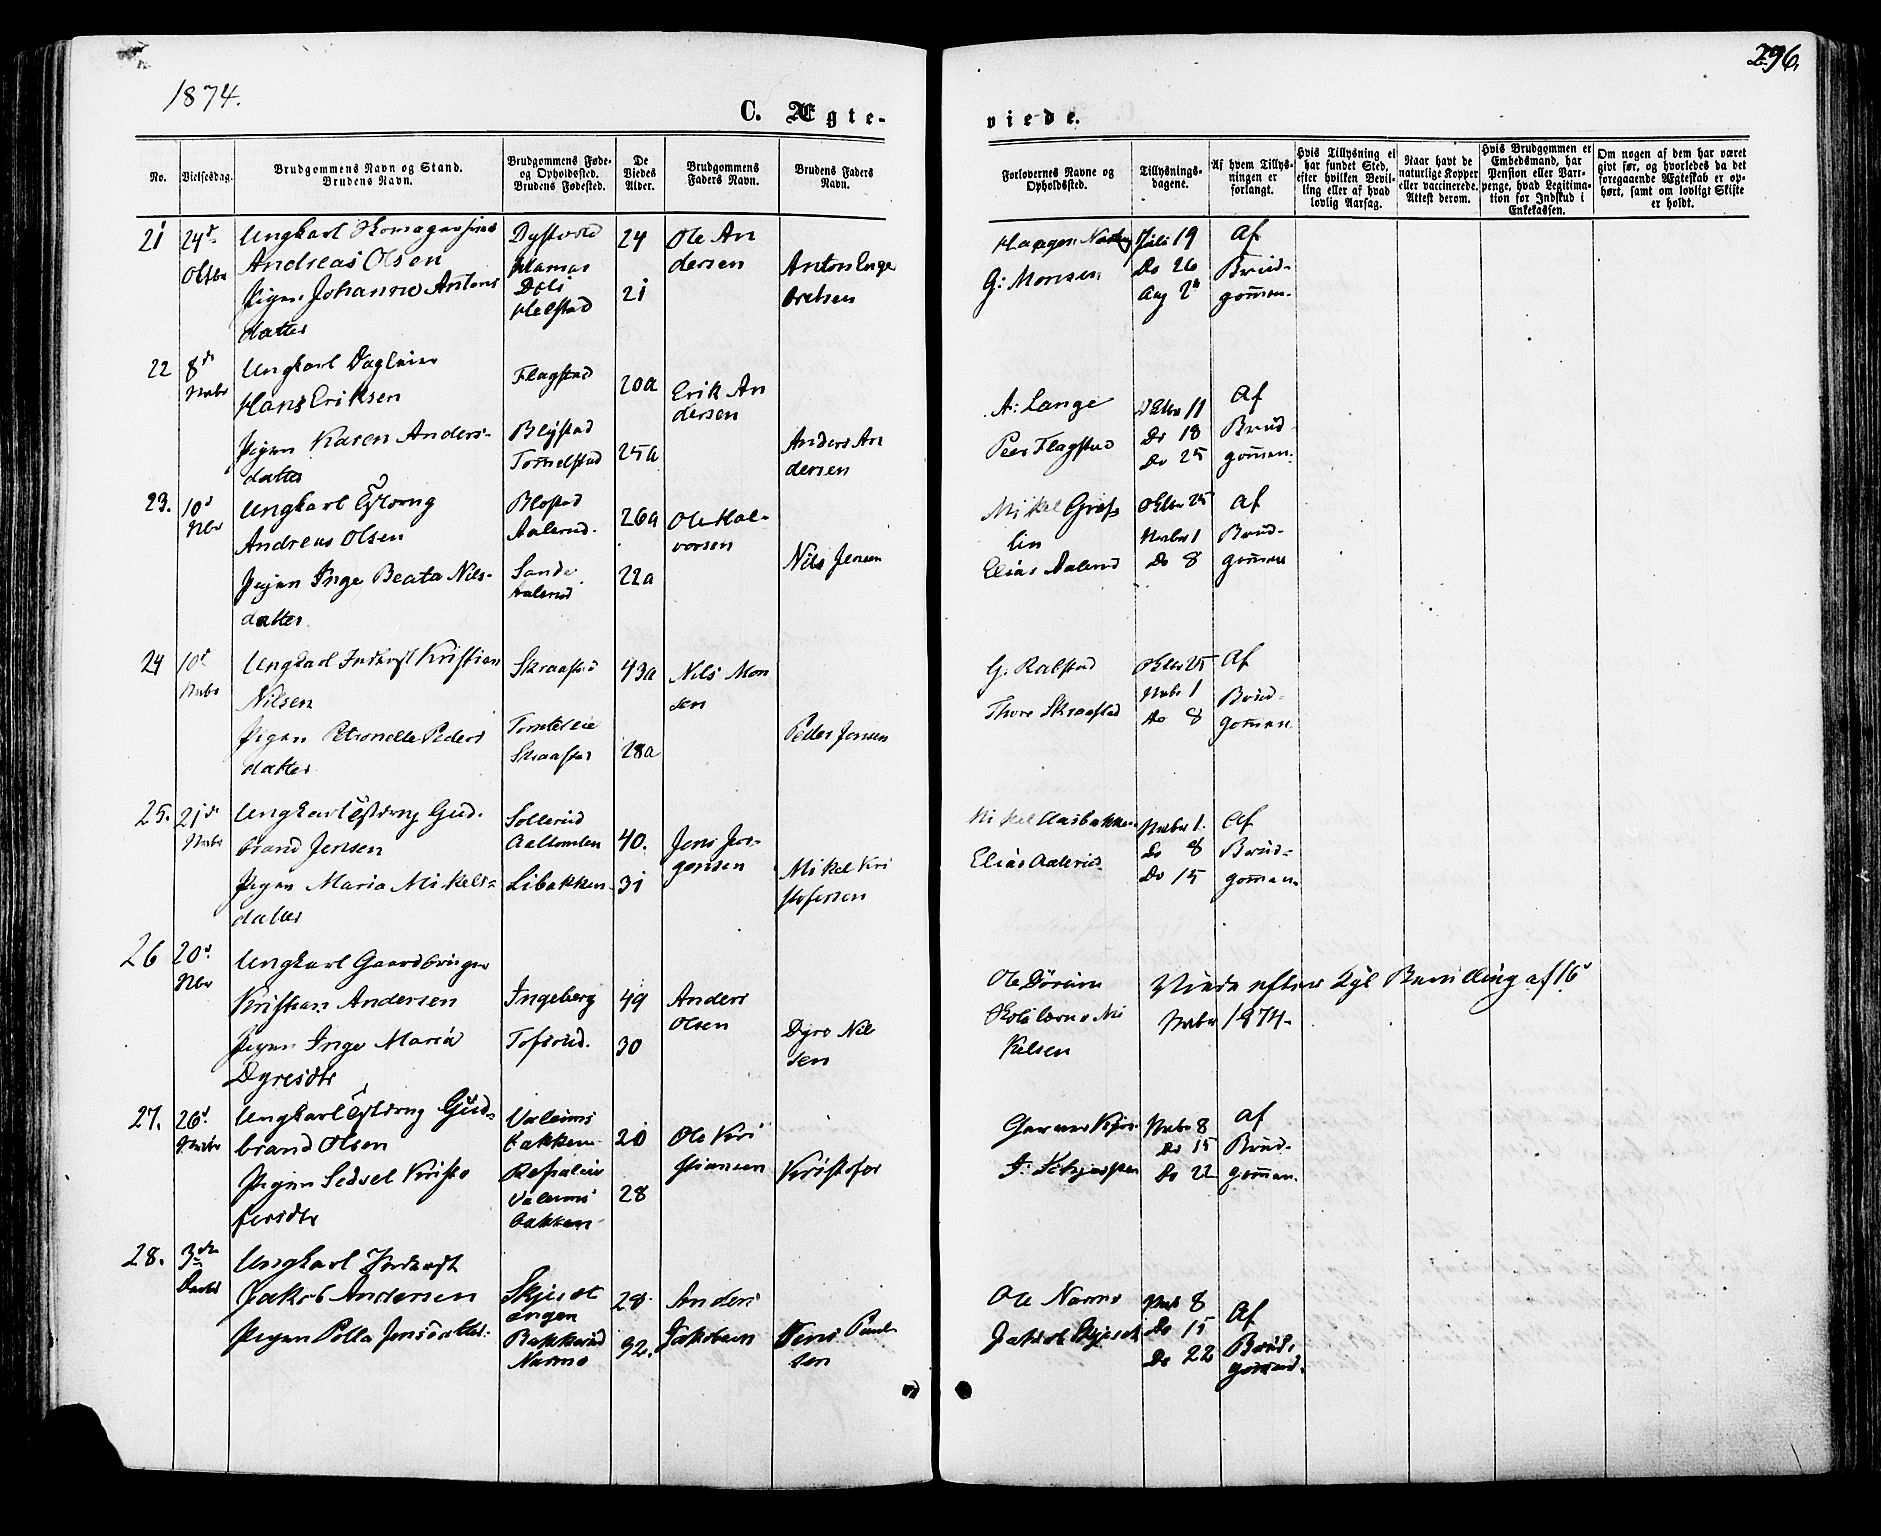 1874.
296.
C. Ægte-
viede.
No.
Vielsesdag.
Brudgommens Navn og Stand.
Brudens Navn.
Brudgommens Føde-
og Opholdssted.
Brudens Fødested.
De
Viedes
Alder.
Brudgommens
Faders Navn.
Brudens Faders
Navn.
Forlovernes Navne og
Opholdssted.
Tillysnings-
dagene.
Af hvem Tillys-
ningen er
forlangt.
Hvis Tillysning ei
har fundet Sted,
efter hvilken Bevil-
ling eller af hvad
lovlig Aarsag.
Naar havt de
naturlige Kopper
eller vaccinerede.
Attest derom.
Hvis Brudgommen er
Embedsmand, har
Pension eller Vart-
penge, hvad Legitima-
tion for Indskud i
Enkekassen.
Om nogen af dem har været
gift før, og hvorledes da det
foregaaende Ægteskab er op-
hørt, samt om lovligt Skifte
er holdt.
21
24d
Oktbr
Ungkarl
Andreas Olsen
Pigen Johanne Antons
datter
Hamar
Helstad
24
21
Ole An
dersen
Anton Enge
bretsen
G: Monsen
Juli 19
Do 26
Aug 2n
Af
Brud-
gommen.
22
8de
Nvbr
Ungkarl
Hans Eriksen
Pigen Karen Anders-
datter
Flagstad
Blystad
Tommelstad
20a
25a
Erik An
dersen
Anders An
dersen
A: Lange
Peer Flagstad
Oktbr 11
Do 18
Do 25
Af
Brud-
gommen.
23.
10d
Nbr
Ungkarl
Andreas Olsen
Pigen Inge Beata Nils-
datter.
Aalerud.
Sande
Aalerud
26a
22a
Ole Hal-
vorsen
Nils Jensen
Mikel Græs
lin
Elias Aalerud
Oktbr 25
Nvbr 1
Do 8
Af
Brud-
gommen
24
10d
Nvbr
Ungkarl Inderst Kristian
Nilsen
Pigen Petronelle Peders
datter.
Skraastad
Skraastad
43a
28a
Nils Mon
sen
Peder Jensen
G: Ralstad
Thore Skraastad
Oktbr 25
Nvbr 1
Do 8
Af
Brud-
gommen
25.
21de
Nvbr
Ungkarl Gud-
brand Jensen
Pigen Maria Mikels-
datter
Sollerud
Libakken
40.
31
Jens Jør-
gensen
Mikel Kri
stofersen
Mikel Aasbakken
Elias Aalerud.
Nvbr 1.
Do 8
Do 15
Af
Brud-
gommen.
26
20d
Nbr
Ungkarl Gaardbruger
Kristian Andersen
Pigen Inge Maria
Dyresdtr
Ingeberg
Tofsrud.
49
30
Anders
Olsen
Dyre Nil
sen
Mi
kelsen
Viede efter Kgl Bevilling af 16d
Nvbr 1874.
27.
26d
Nvbr
Ungkarl Gud-
brand Olsen
Pigen Sedsel Kristo
fersdtr
bakken
bakken
20
28
Ole Kri
stiansen
Kristofer
Nvbr 8
Do 15
Do 22
Af
Brud-
gommen.
28.
3die
Decbr
Ungkarl Inderst
Jakob Andersen
Pigen Polla Jensdatter.
engen
Bakkerud
28
92.
Anders
Jakobsen
Jens Paul-
sen
Nvb 8
Do 15
Do 22
Af
Brud-